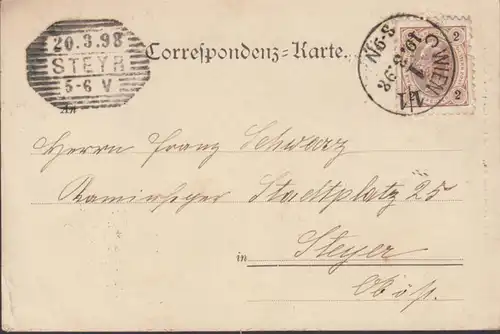 20.3.98
STEYR
5-6 V
Correspondenz-Karte.
WIEN 1/1
19.3.98
8-9N
2
2
An
Herrn Franz Schwarz
Stadtplatz 25
in Steyer
Ob öst.